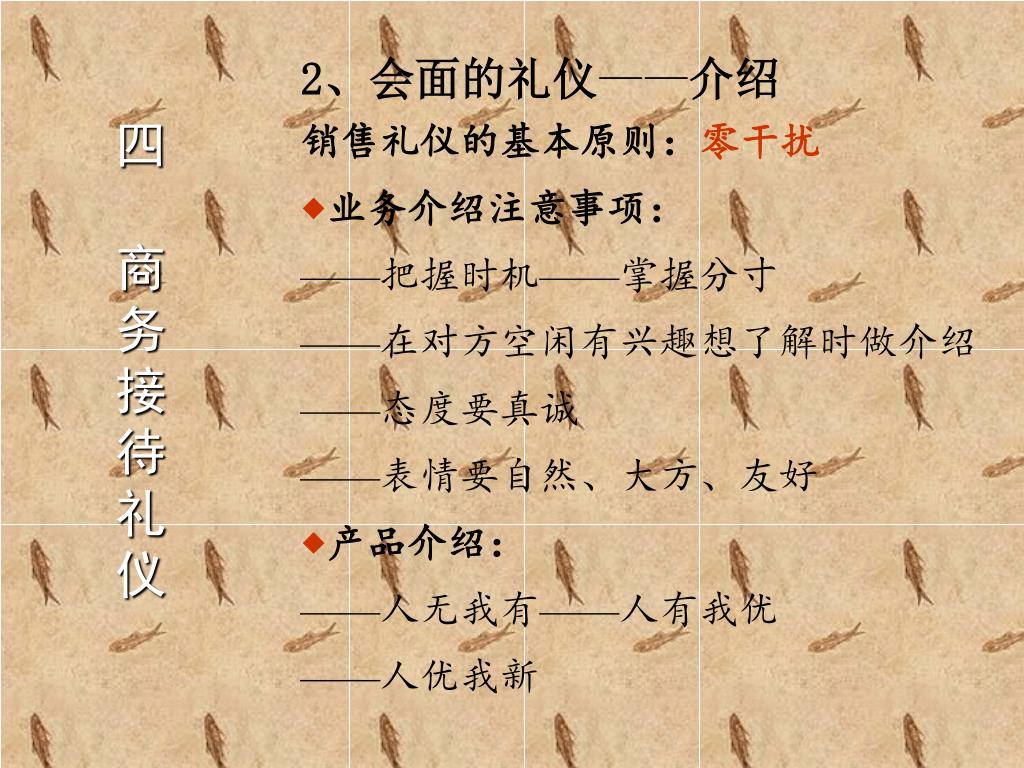 四
商务接待礼仪
2、会面的礼仪——介绍
销售礼仪的基本原则：零干扰
◆业务介绍注意事项：
——把握时机——掌握分寸
——在对方空闲有兴趣想了解时做介绍
——态度要真诚
——表情要自然、大方、友好
◆产品介绍：
——人无我有——人有我优
——人优我新